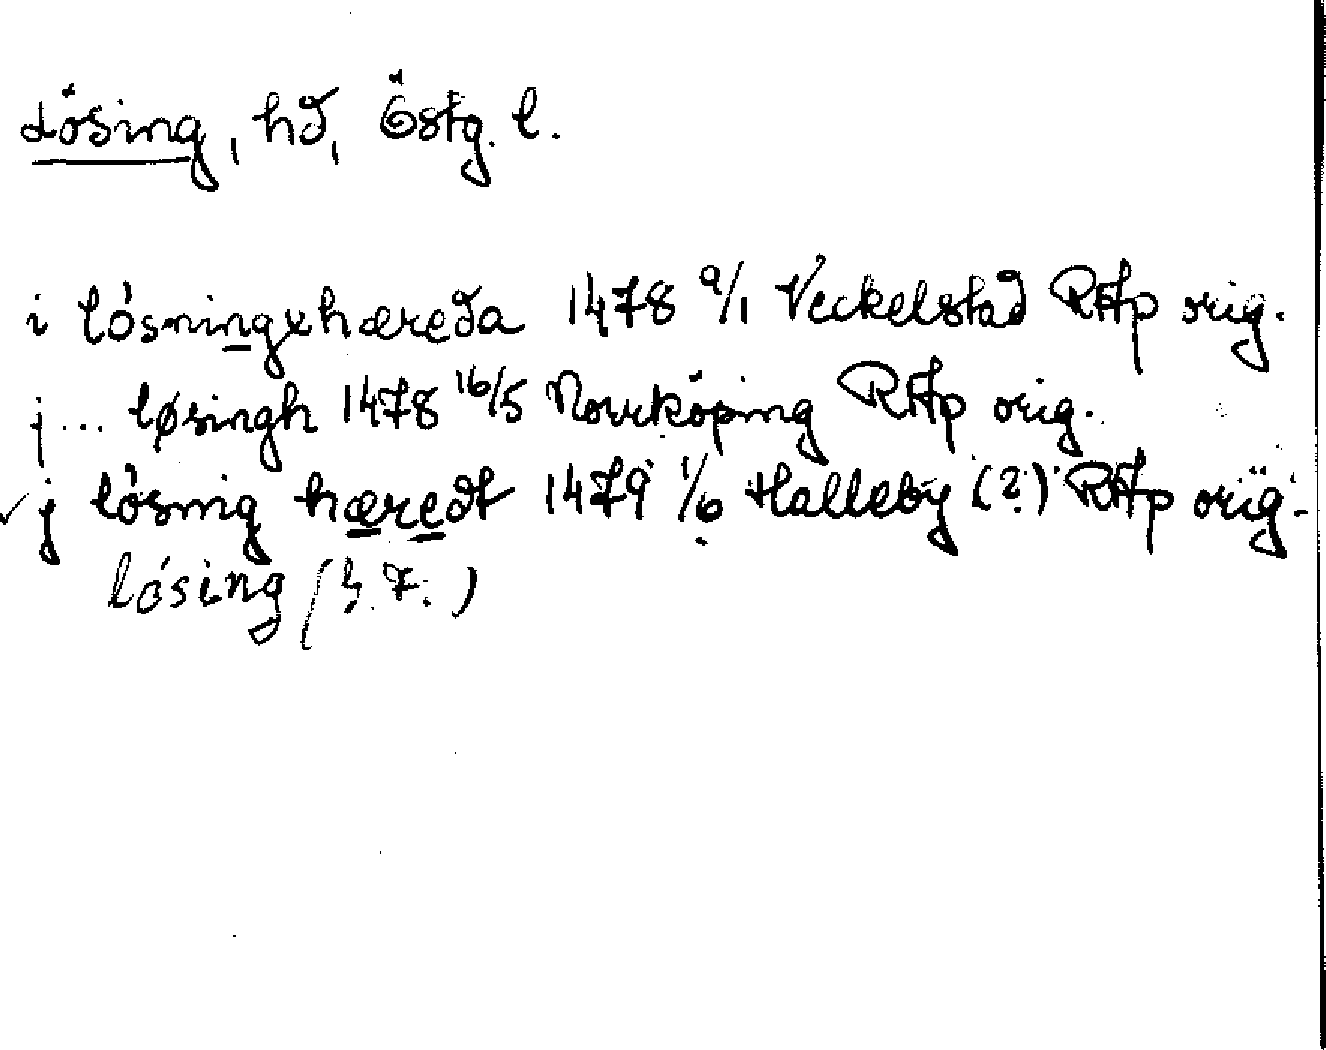 Lösing, hd, Östg. l.
i lósningxhæreda 1478 9/1 Veckelstad RAp orig.
j... løsingh 1478 16/5 Norrköping RAp orig.
j lósnig hæredt 1479 1/6 Halleby (?) RAp orig.
lósing (s. 7.)